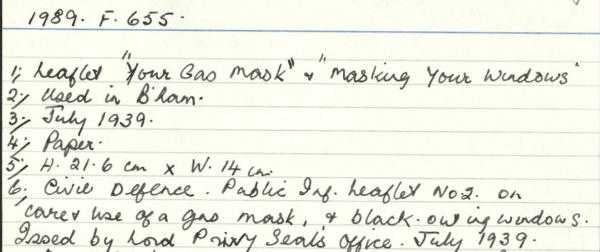 1989. F. 655.
1; Leaflet "Your Gas Mask" & "Masking Your Windows"
2; Used in B'ham.
3; July 1939.
4; Paper.
5; H. 21.6 cm x W. 14 cm.
6. Civil Defence. Public Inf. Leaflet No2. on
care & use of a gas mask, & black-outing windows.
Issed by Lord Privy Seals Office. July 1939.